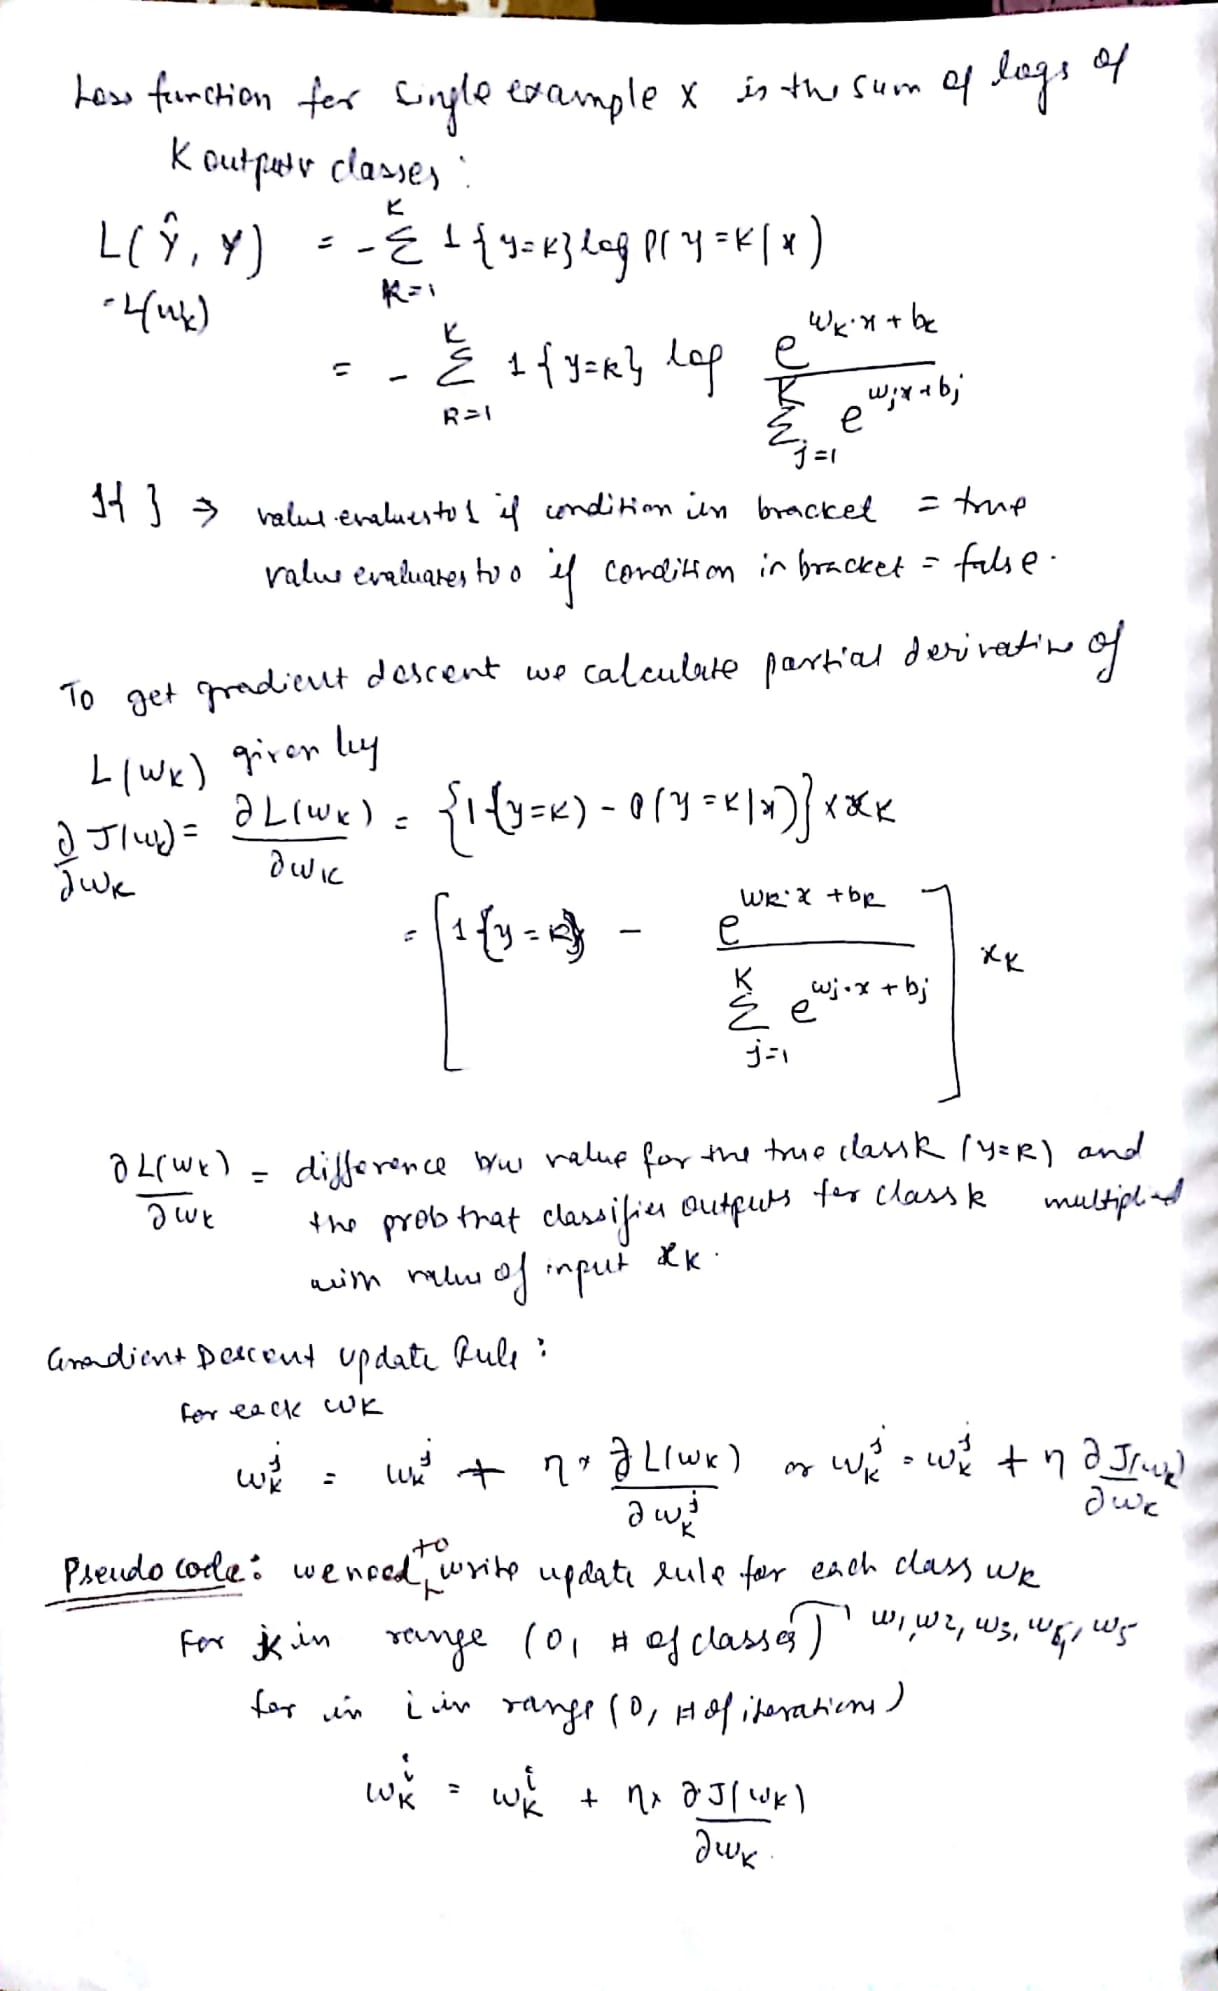 Loss function for single example x is the sum of logs of
K outputs classes:
L(Ŷ, Y) = - Σ_{K=1}^{K} 1{y=K} log P(y=K|x)
= L(wk)
= - Σ_{k=1}^{K} 1{y=k} log e^{wk·x + bk} / Σ_{j=1}^{K} e^{wj·x + bj}
1{ } ⇒ value evaluates to 1 if condition in bracket = true
value evaluates to 0 if condition in bracket = false.
To get gradient descent we calculate partial derivative of
L(wk) given by
∂J(wk)/∂wk = ∂L(wk)/∂wk = {1{y=k) - P(y=k|x)} × xk
= [1{y=k} - e^{wk·x + bk} / Σ_{j=1}^{K} e^{wj·x + bj}] xk
∂L(wk)/∂wk = difference b/w value for the true class k (y=k) and
the prob that classifier outputs for class k multiplied
with value of input xk.
Gradient Descent update Rule:
For each wk
wk^j = wk^j + η * ∂L(wk)/∂wk^j or wk^j = wk^j + η ∂J(wk)/∂wk
Pseudo code: we need to write update rule for each class wk
For k in range (0, # of classes) w1, w2, w3, w4, w5
for in i in range (0, # of iterations)
wk^i = wk^i + η × ∂J(wk)/∂wk.